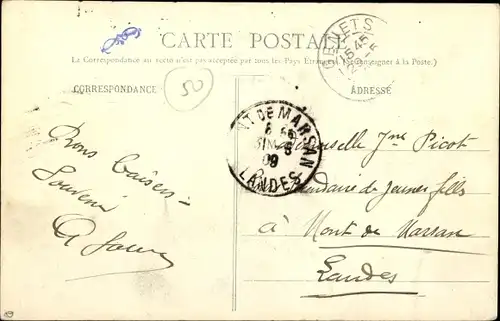 CARTE POSTALE
La Correspondance au recto n'est pas acceptée par tous les Pays Etrangers (Se renseigner à la Poste.)
CORRESPONDANCE
ADRESSE
50
GENETS
MT DE MARSAN
09
LANDES
Bons baisers
Souvenir
Mademoiselle Jne Picot
de jeunes filles
à Mont de Marsan
Landes